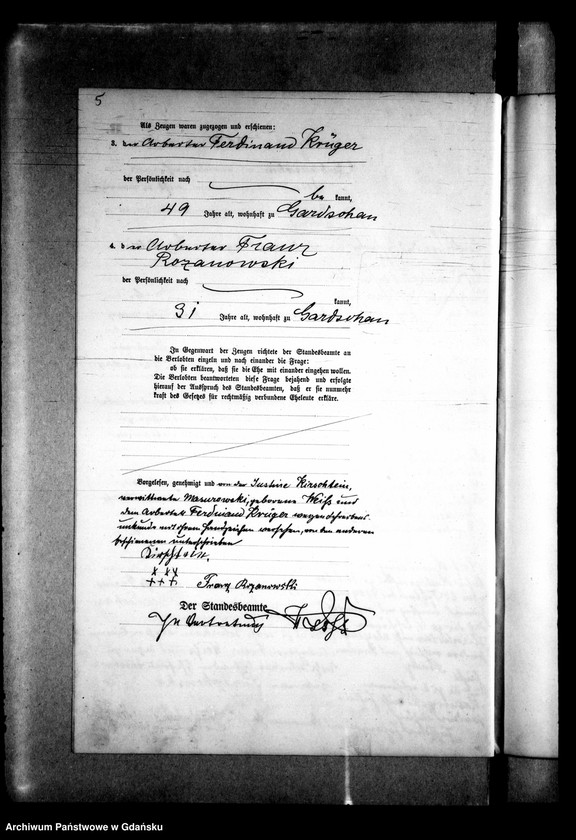 5
Als Zeugen waren zugezogen und erschienen:
3. der Arbeiter Ferdinand Krüger
der Persönlichkeit nach
be kannt,
49 Jahre alt, wohnhaft zu Gardschau
4. der Arbeiter Franz
Rozanowski
der Persönlichkeit nach
kannt,
31 Jahre alt, wohnhaft zu Gardschau
In Gegenwart der Zeugen richtete der Standesbeamte an
die Verlobten einzeln und nach einander die Frage:
ob sie erklären, daß sie die Ehe mit einander eingehen wollen.
Die Verlobten beantworteten diese Frage bejahend und erfolgte
hierauf der Ausspruch des Standesbeamten, daß er sie nunmehr
kraft des Gesetzes für rechtmäßig verbundene Eheleute erkläre.
Vorgelesen, genehmigt und von der Justine Kirschstein,
verwittwete Masurowski, geborene Weiß und
dem Arbeiter Ferdinand Krüger wegen Schreibens-
unkunde mit ihren Handzeichen versehen, von den anderen
Erschienenen unterschrieben
Kirschstein.
+++ +++
Franz Rozanowski
Der Standesbeamte
In Vertretung
Archiwum Państwowe w Gdańsku